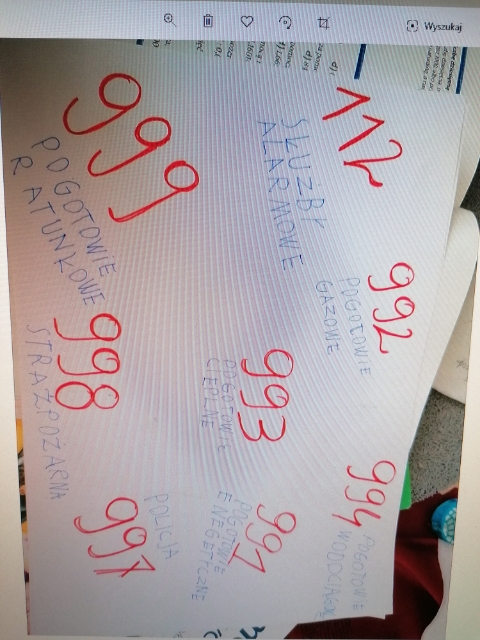 Wyszukaj
112
SKUŻBY
ALARMOWE
999
POGOTOWIE
RATUNKOWE
992
POGOTOWIE
GAZOWE
993
POGOTOWIE
CIEPLNE
998
STRAŻ POŻARNA
994
POGOTOWIE
WODOCIĄGOWE
991
POGOTOWIE
ENEGETYCZNE
997
POLICJA